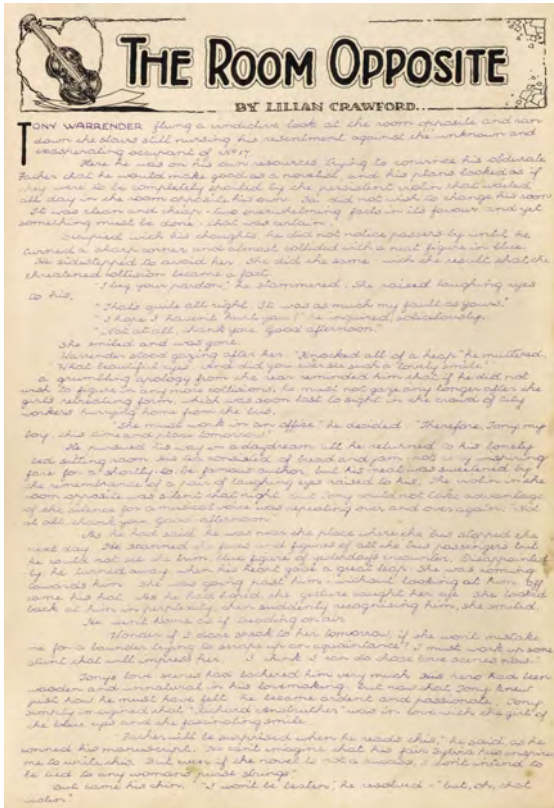 THE ROOM OPPOSITE
BY LILIAN CRAWFORD..
TONY WARRENDER flung a vindictive look at the room opposite and ran
down the stairs still nursing his resentment against the unknown and
exasperating occupant of No 17
Here he was on his own resources trying to convince his obdurate
Father that he would make good as a novelist, and his plans looked as if
they were to be completely spoiled by the persistent violin that wailed
all day in the room opposite his own. He did not wish to change his room
It was clean and cheap - two overwhelming facts in its favour and yet
something must be done, that was certain.
Occupied with his thoughts, he did not notice passers-by until he
turned a sharp corner and almost collided with a neat figure in blue.
He sidestepped to avoid her. She did the same - with the result that the
threatened collision became a fact.
"I beg your pardon," he stammered. She raised laughing eyes
to his.
"That's quite all right. It was as much my fault as yours."
"I hope I haven't hurt you?" he inquired, solicitously.
"Not at all, thank you. Good afternoon."
She smiled and was gone.
Warrender stood gazing after her. "Knocked all of a heap" he muttered.
"What beautiful eyes. And did you ever see such a lovely smile."
A grumbling apology from the rear reminded him that if he did not
wish to figure in any more collisions, he must not gaze any longer after the
girl's retreating form, which was soon lost to sight in the crowd of city
workers hurrying home from the bus.
"She must work in an office" he decided. "Therefore, Tony my
boy, this time and place tomorrow."
He pursued his way in a daydream till he returned to his lonely
bed sitting room. His tea consisted of bread and jam not very inspiring
fare for a shortly-to-be famous author, but his meal was sweetened by
the remembrance of a pair of laughing eyes raised to his. The violin in the
room opposite was silent that night but Tony could not take advantage
of the silence for a musical voice was repeating over and over again: "Not
at all, thank you. Good afternoon"
As he had said, he was near the place where the bus stopped the
next day. He scanned the faces and figures of all the bus passengers but
he could not see the trim blue figure of yesterday's encounter. Disappointed-
ly he turned away when his heart gave a great leap. She was coming
towards him. She was going past him - without looking at him. Off
came his hat. As he had hoped, the gesture caught her eye. She looked
back at him in perplexity, then suddenly recognising him, she smiled.
He went home as if treading on air
"Wonder if I dare speak to her tomorrow, if she won't mistake
me for a bounder trying to scrape up an acquaintance? I must work up some
stunt that will impress her. I think I can do those love scenes now."
Tony's love scenes had bothered him very much. His hero had been
wooden and unnatural in his lovemaking. But now that Tony knew
just how he must have felt he became ardent and passionate. Tony
simply imagined that "Richard Carruthers" was in love with the girl of
the blue eyes and the fascinating smile.
"Father will be surprised when he reads this," he said, as he
conned his manuscript. "He can't imagine that his fair Sylvia has inspired
me to write this. But even if the novel is not a success, I don't intend to
be tied to any woman's purse strings".
Out came his chin. "I won't be beaten," he resolved - "but, oh, that
violin."